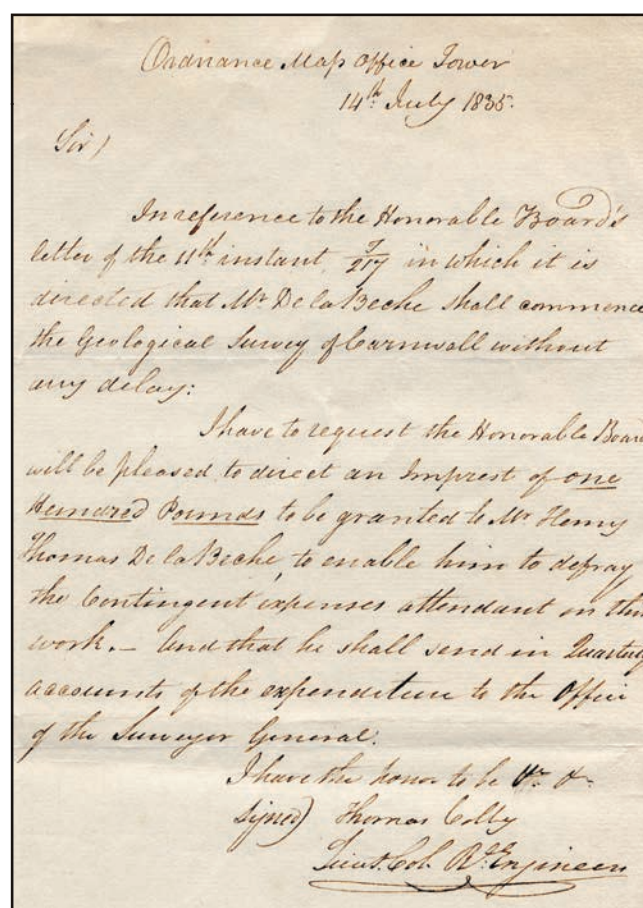 Ordnance Map Office Tower
14th July 1835.
Sir)
In reference to the Honorable Board's
letter of the 11th instant, in which it is
directed that Mr. De la Beche shall commence
the Geological Survey of Cornwall without
any delay:
I have to request the Honorable Board
will be pleased to direct an Imprest of one
Hundred Pounds to be granted to Mr Henry
Thomas De la Beche, to enable him to defray
the Contingent expenses attendant on this
work. – And that he shall send in Quarterly
accounts of the expenditure to the Office
of the Surveyor General.
I have the honor to be &c &c
signed) Thomas Colby
Lieut. Col. Rl. Engineers